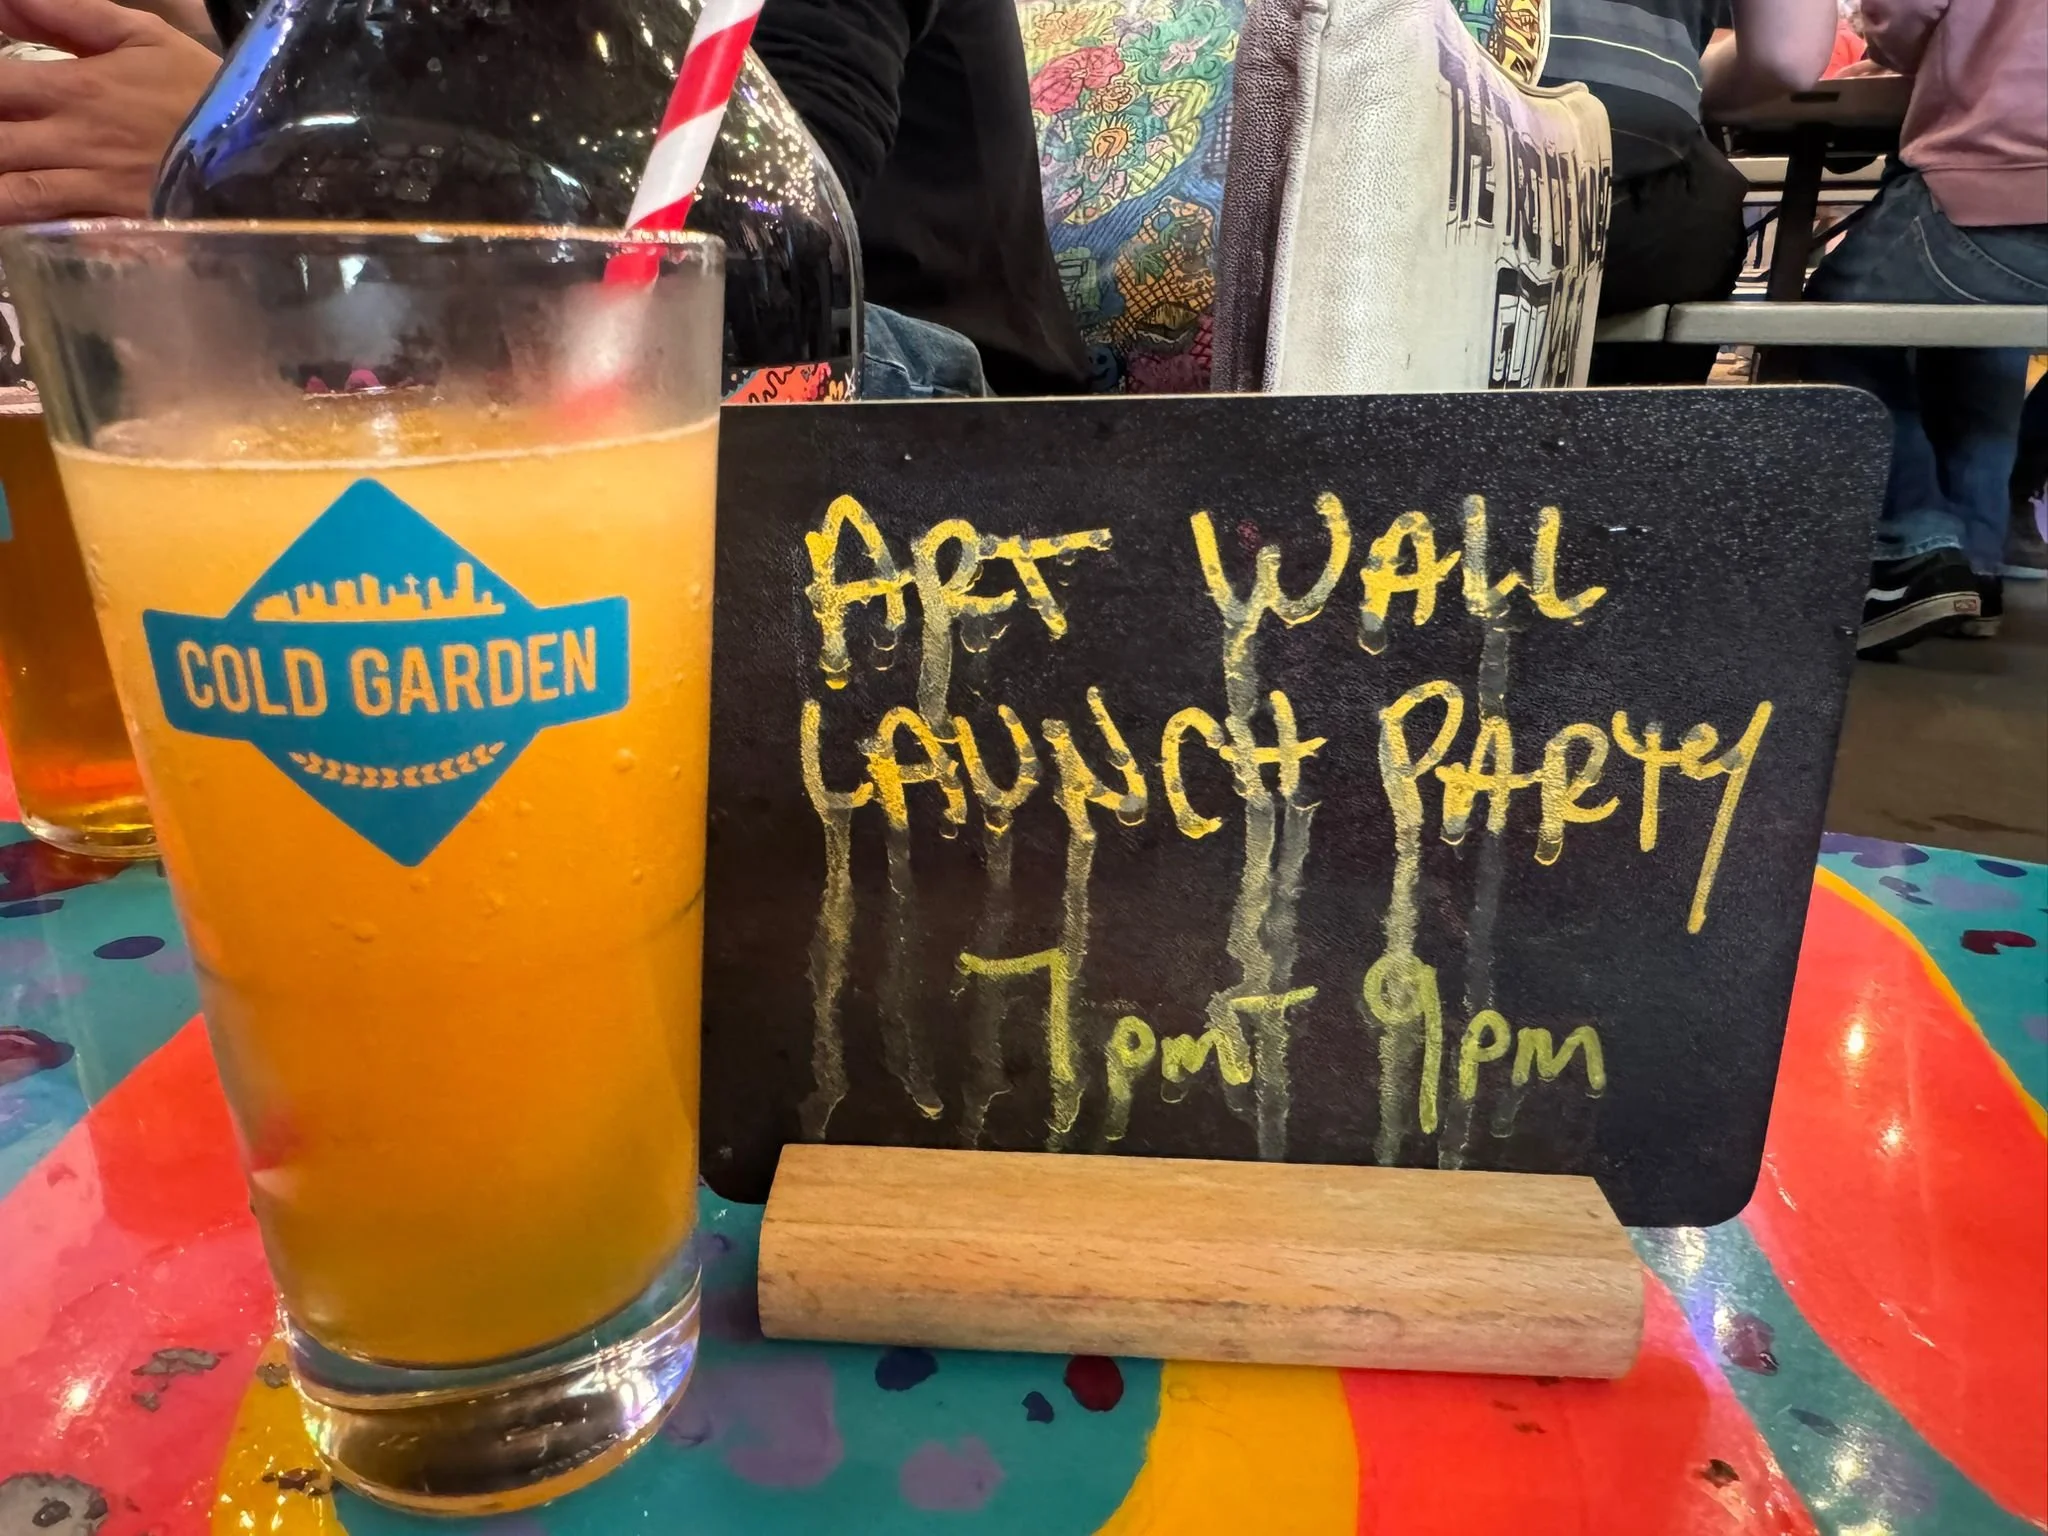 COLD GARDEN
ART WALL
LAUNCH PARTY
7pmT 9pm